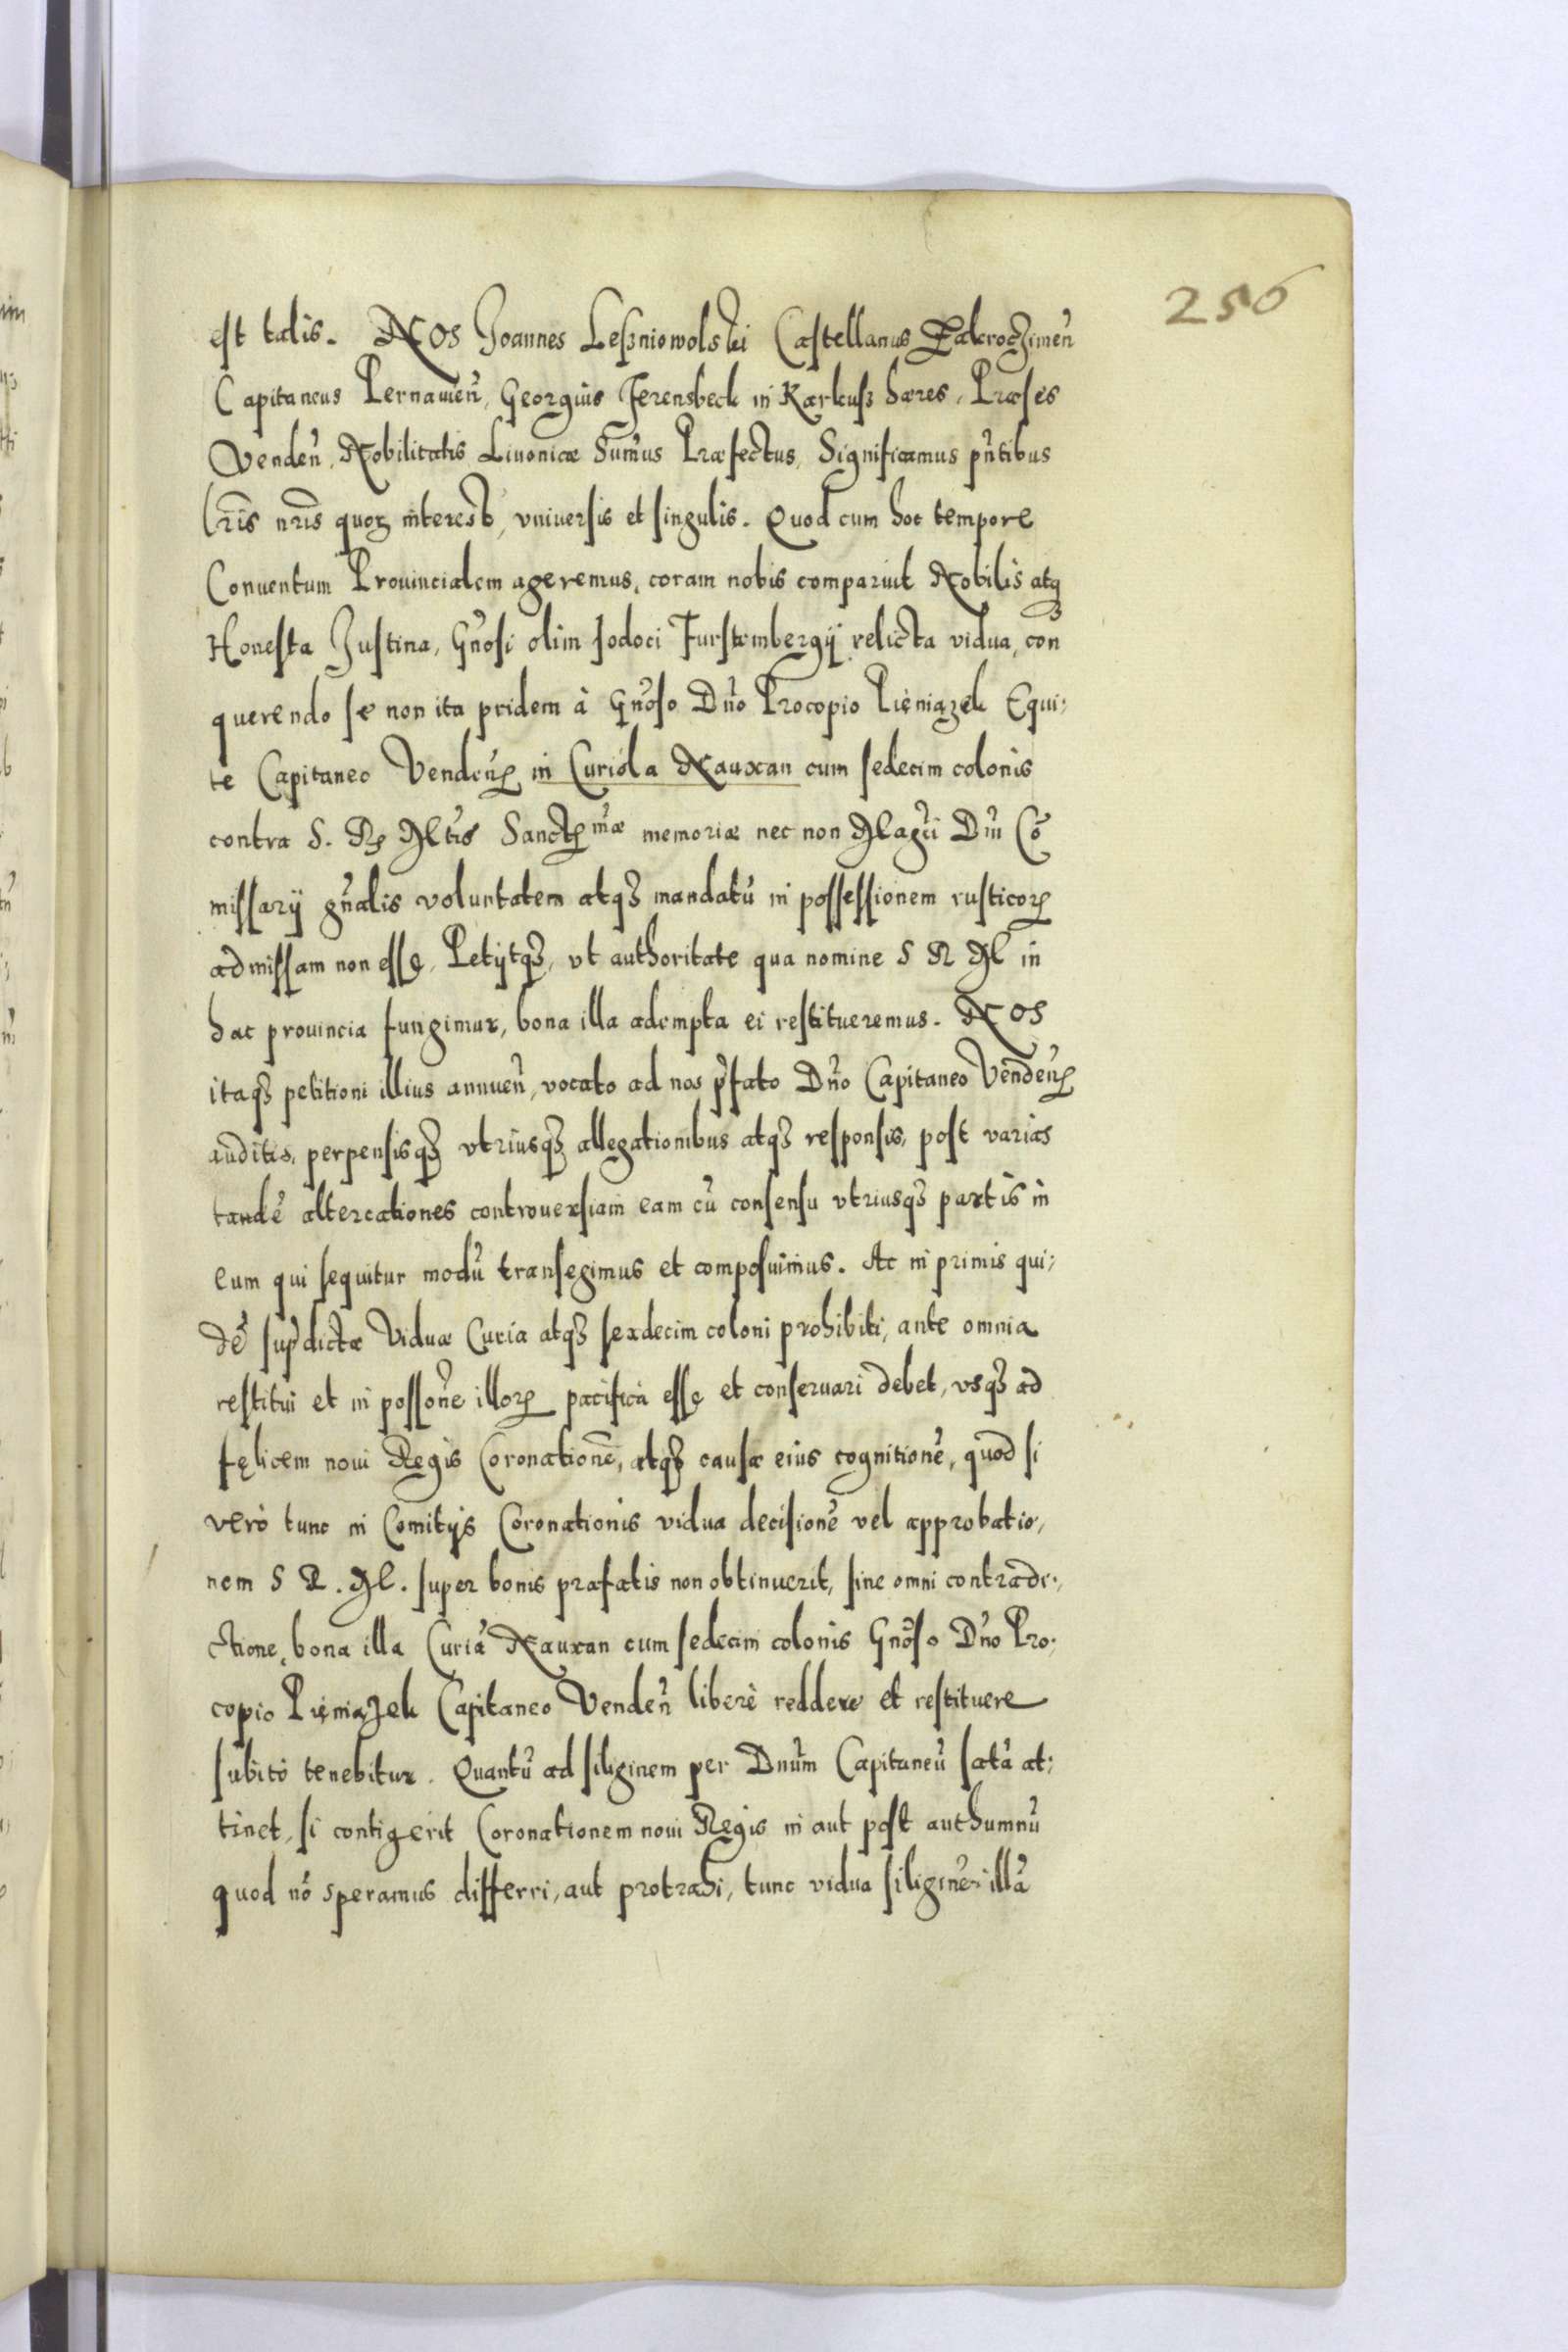 256
est talis. NOS Joannes Leßniowolski Castellanus Zakroczimen̄
Capitaneus Pernauien̄, Georgius Ferensbeck in Karkuß hæres, Præses
Venden̄, Nobilitatis Liuoniæ Sum̄us Præfectus, Significamus pn̄tibus
lr̄is nr̄is quoꝝ interest, vniuersis et singulis. Quod cum hoc tempore
Conuentum Prouincialem ageremus, coram nobis comparuit Nobilis atqꝫ
Honesta Justina, Gn̄osi olim Jodoci Furstembergij relicta vidua, con
querendo se non ita pridem à Gn̄oso Dn̄o Procopio Pieniązek Equi:
te Capitaneo Venden̄ in Curiola Nauxan cum sedecim colonis
contra S. R. Mtis Sanctꝫmæ memoriæ nec non Magci Dni Cō
missarij gn̄alis voluntatem atqꝫ mandatū in possessionem rusticoꝝ
admissam non essę, Petijtqꝫ, vt authoritate qua nomine S R M in
hac prouincia fungimur, bona illa adempta ei restitueremus. NOS
itaqꝫ petitioni illius annuen̄, vocato ad nos p̄fato Dn̄o Capitaneo Venden̄
auditis, perpensisqꝫ vtriusqꝫ allegationibus atqꝫ responsis, post varias
tandē altercationes controuersiam eam cū consensu vtriusqꝫ partis in
eum qui sequitur modū transegimus et composuimus. Ac in primis qui:
dē sup̄dictæ Viduæ Curia atqꝫ sexdecim coloni prohibiti, ante omnia
restitui et in posson̄e illoꝝ pacifica essę et conseruari debet, vsqꝫ ad
fęlicem noui Regis Coronationē, atqꝫ causæ eius cognitionē, quod si
verò tunc in Comitijs Coronationis vidua decisionē vel approbatio,
nem S R. M. super bonis præfatis non obtinuerit, sine omni contradi,
ctione, bona illa Curiā Nauxan cum sedecim colonis Gn̄oso Dn̄o Pro.
copio Pieniązek Capitaneo Venden̄ liberè reddere et restituere
subitò tenebitur. Quantū ad siliginem per Dnūm Capitaneū satā at:
tinet, si contigerit Coronationem noui Regis in aut post authumnū
quod nō speramus differri, aut protrahi, tunc vidua siliginē illā